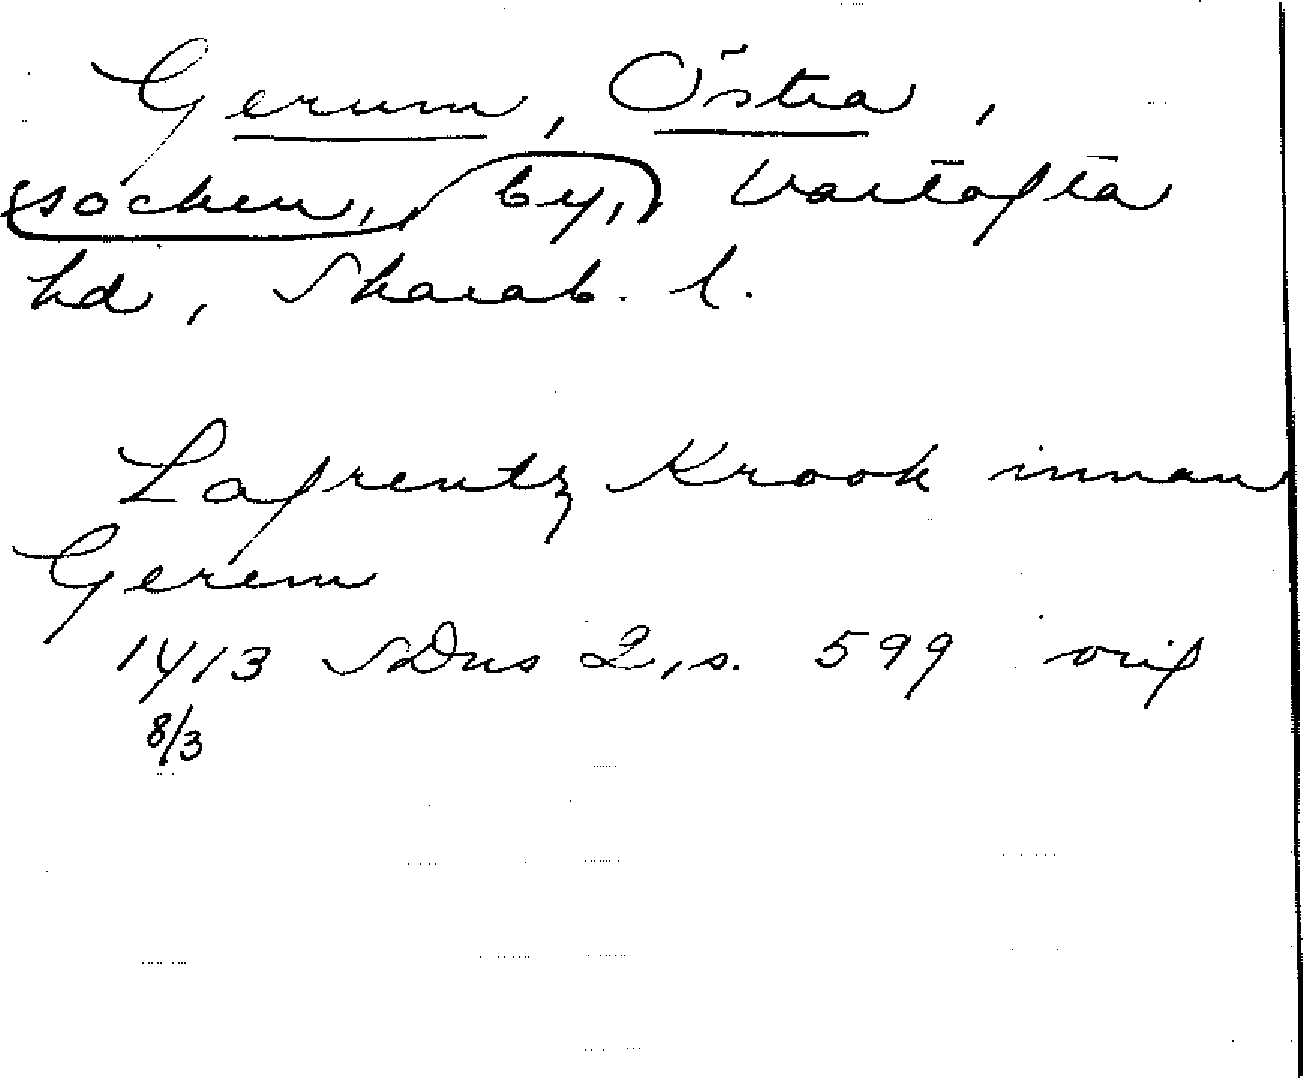 Gerum, Östra,
socken, by, Vartofta
hd, Skarab. l.
Lafrentz Krook innan
Gerem
1413 SDns 2, s. 599 orig
8/3